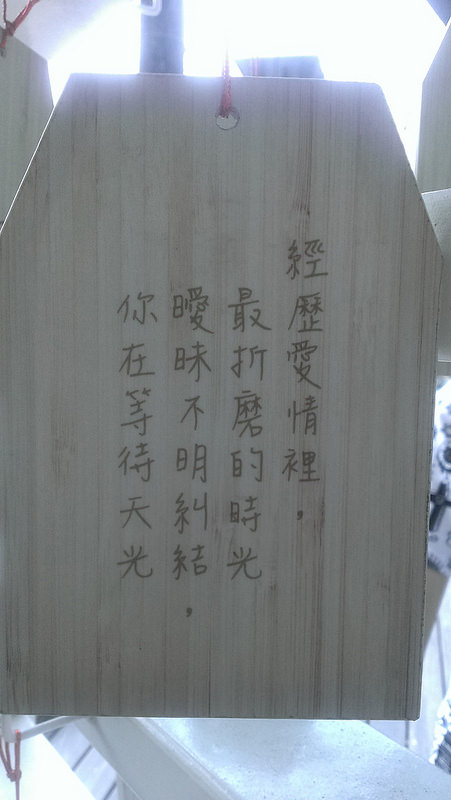 經歷愛情裡，
最折磨的時光
曖昧不明糾結，
你在等待天光